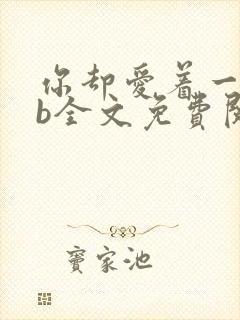 你却爱着一
b全文免費閱
寶家池